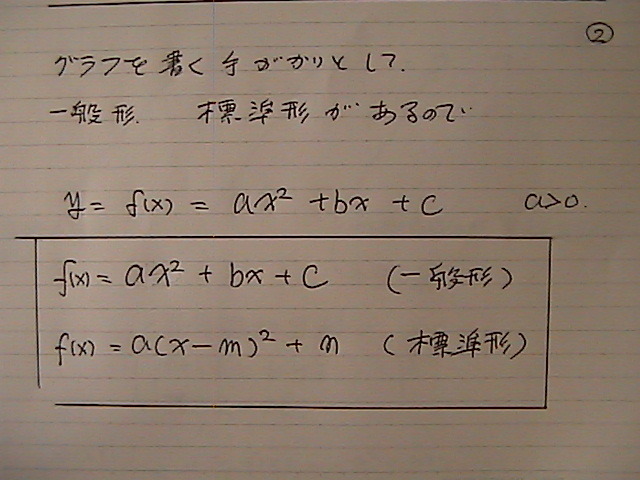 ②
グラフを書く手がかりとして.
一般形. 標準形があるので
y = f(x) = ax² + bx + c a>0.
f(x) = ax² + bx + c (一般形)
f(x) = a(x-m)² + n (標準形)